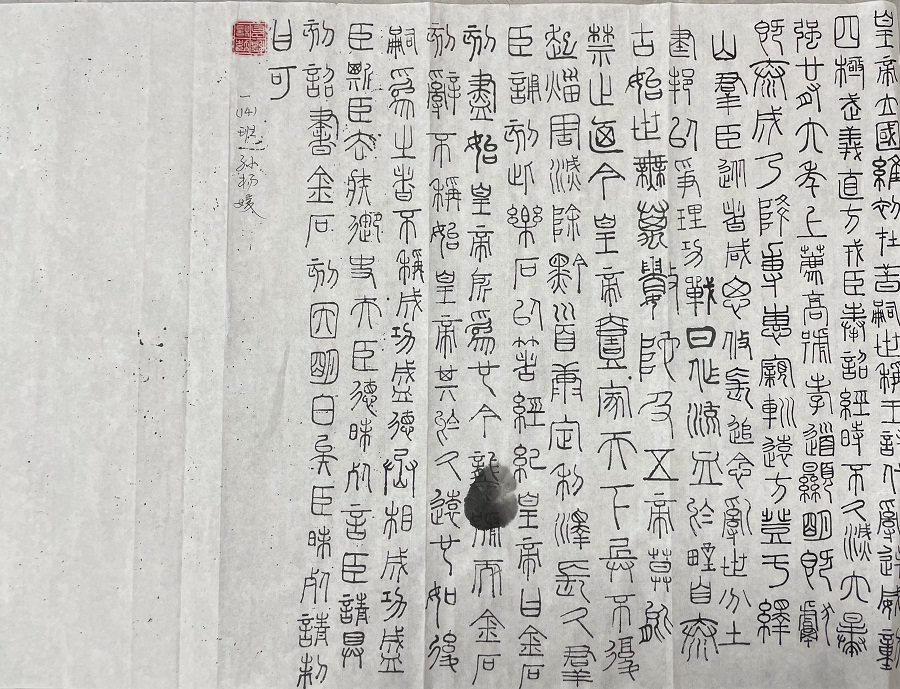 皇帝立國維初在昔嗣世稱王討伐亂逆威動
四極武義直方戎臣奉詔經時不久滅六暴
强廿有六年上薦高號孝道顯明既獻
既泰成乃降專惠親巡遠方登于繹
山羣臣從者咸思攸長追念亂世分土
建邦以爭理功戰日作流血於野自泰
古始世無萬數陀及五帝莫能
禁止迺今皇帝壹家天下兵不復
起災害滅除黔首康定利澤長久羣
臣誦刻此樂石以著經紀皇帝曰金石
刻盡始皇帝所爲也今襲號而金石
刻辭不稱始皇帝其於久遠也如後
嗣爲之者不稱成功盛德丞相成功盛
臣斯臣去疾御史大臣德昧死言臣請具
刻詔書金石刻因明白矣臣昧死請制
曰可
一(14)班 孙杨媛